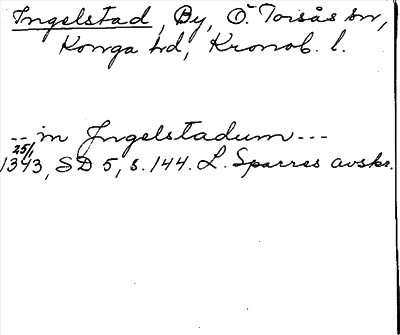 Ingelstad, By, Ö. Torsås sn,
Konga hd, Kronob. l.
-- in Jngelstadum ---
25/1
1343, SD 5, s. 144. L. Sparres avskr.